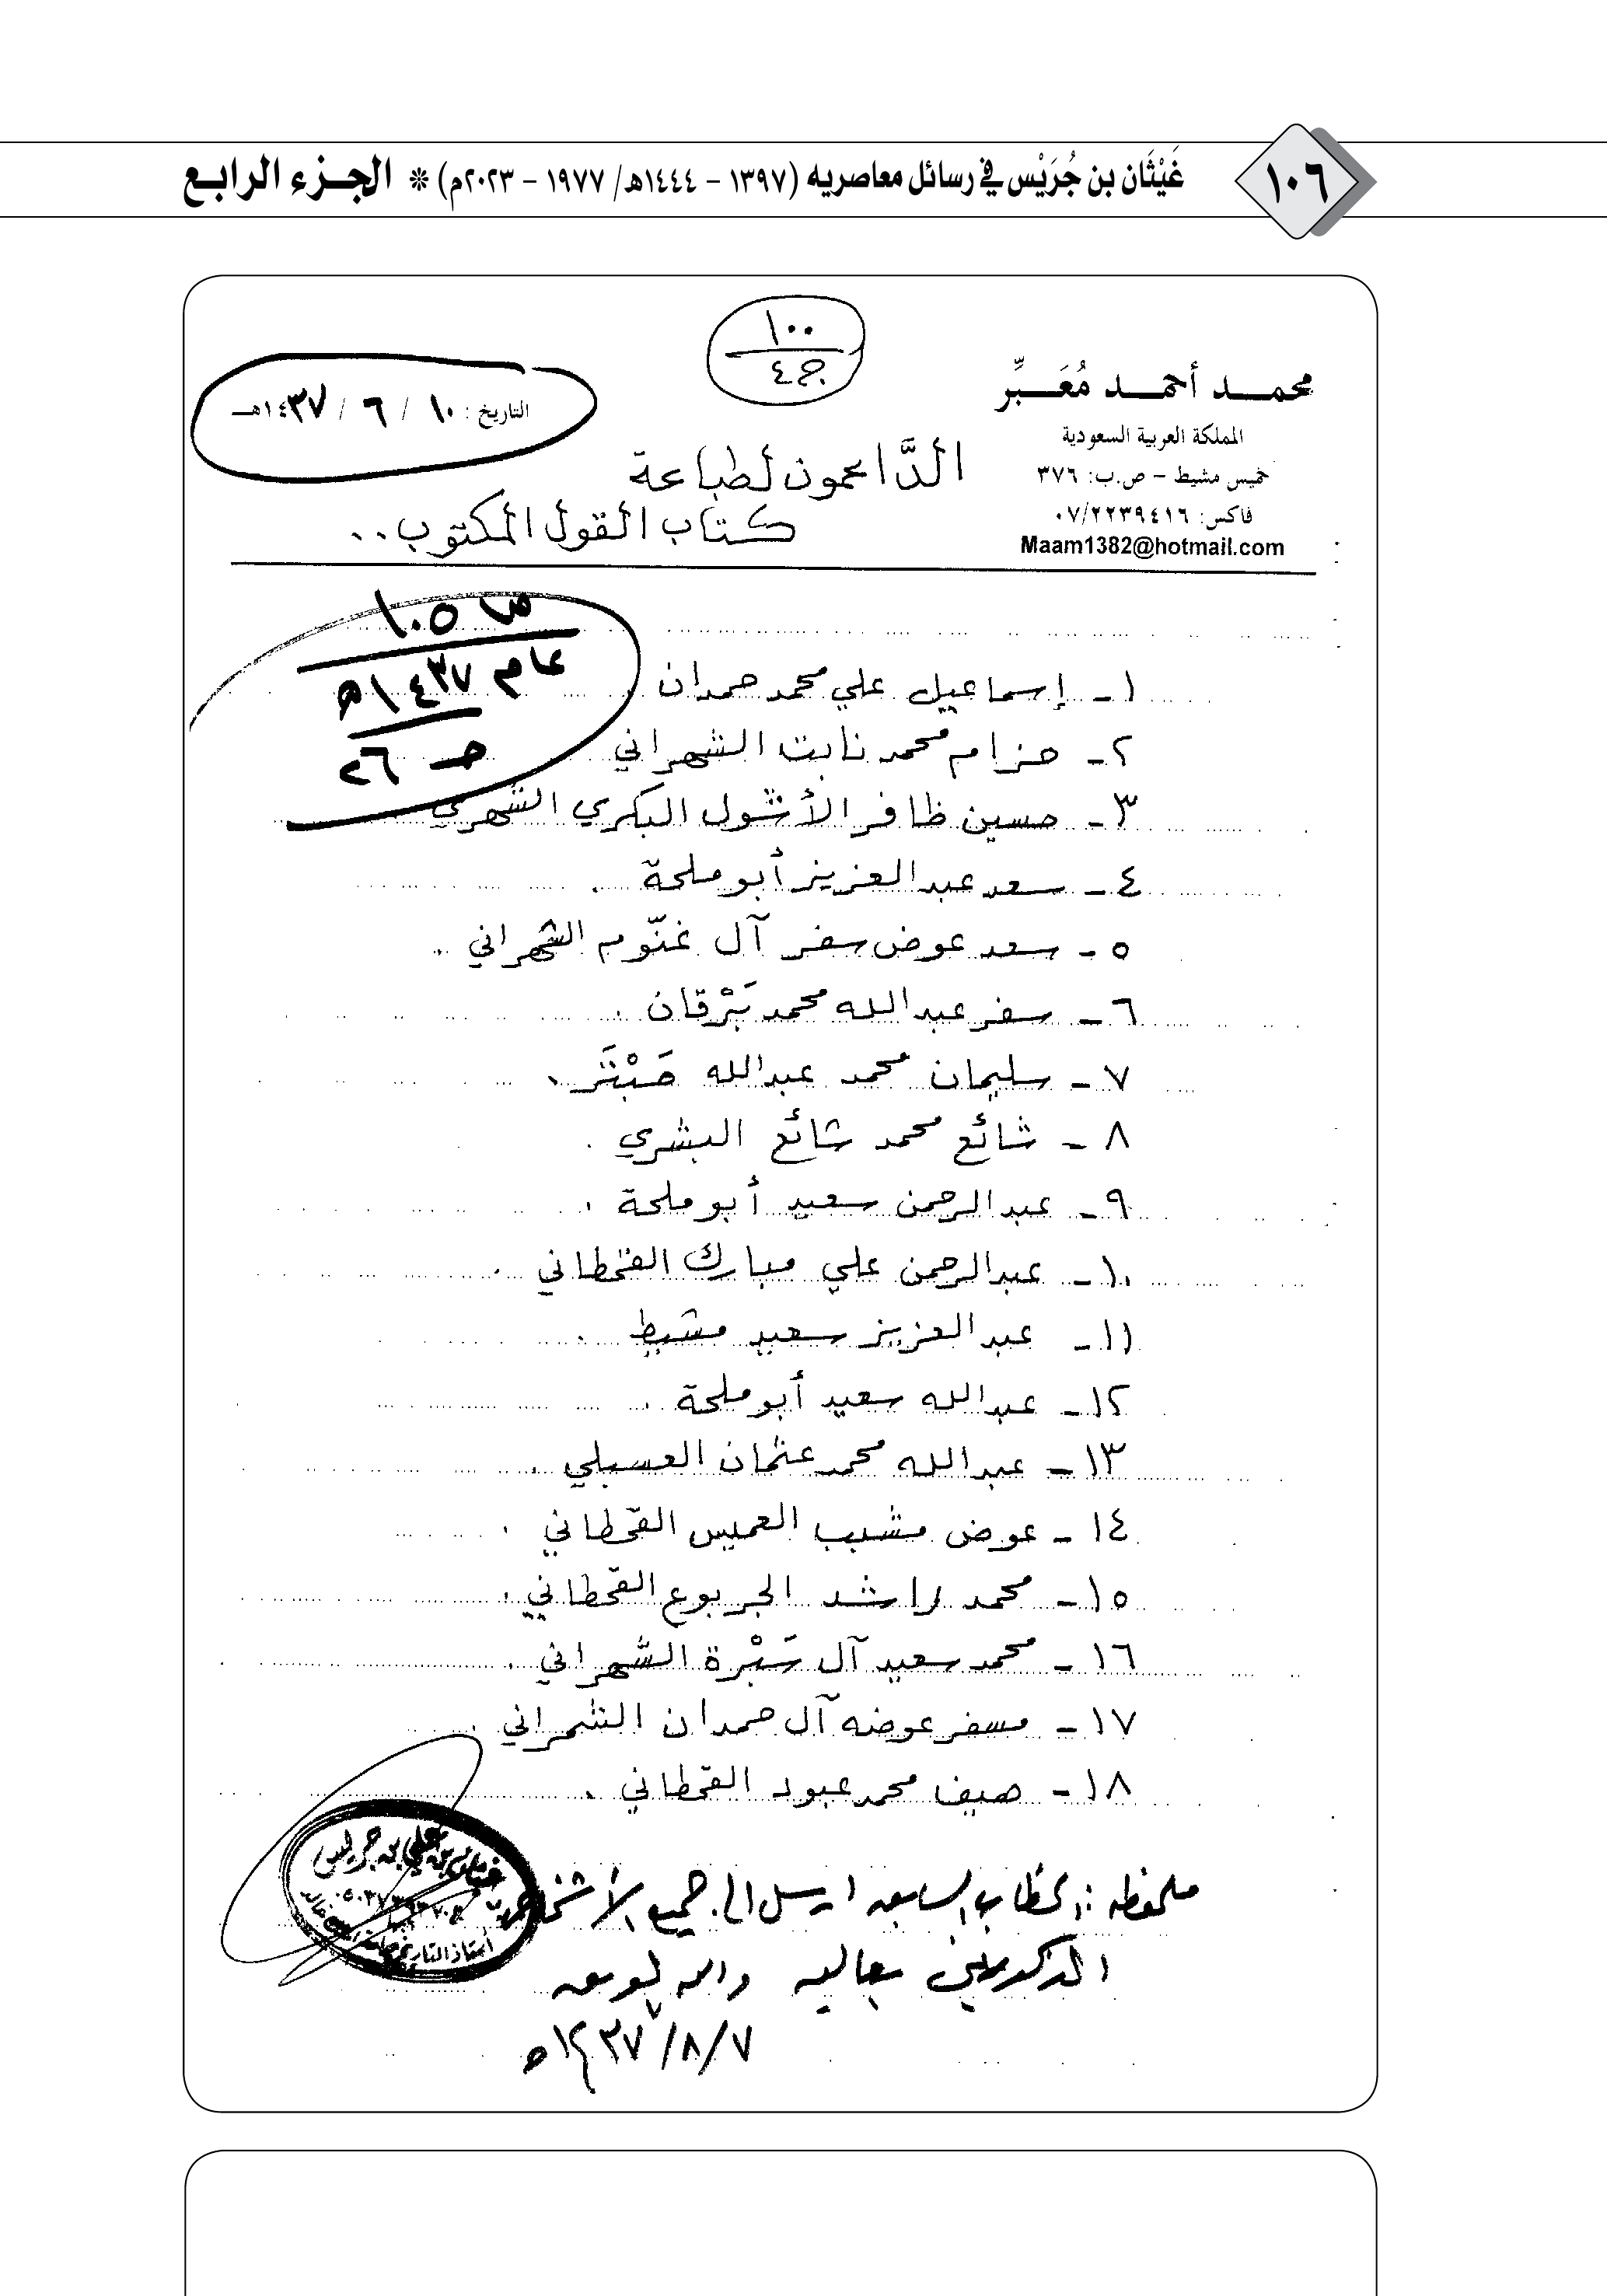 ١٠٦
غَيْثَان بن جُرَيْس في رسائل معاصريه (١٣٩٧ - ١٤٤٤هـ/ ١٩٧٧ - ٢٠٢٣م) * الجزء الرابع
١٠٠
ج٤
محمد أحمد مُعَبِّر
المملكة العربية السعودية
خميس مشيط - ص.ب: ٣٧٦
فاكس: ٠٧/٢٢٣٩٤١٦
Maam1382@hotmail.com
التاريخ : ١٠ / ٦ / ١٤٣٧هـ
الدَّاعمون لطباعة
كتاب القول المكتوب ..
ص ١٠٥
عام ١٤٣٧هـ
حـ ٢٦
١- إسماعيل علي محمد حمدان
٢- حزام محمد نابت الشهراني
٣- حسين ظافر الأشول البكري الشهري
٤- سعد عبدالعزيز أبو ملحة .
٥- سعد عوض سفر آل غنّوم الشهراني .
٦- سفر عبدالله محمد بَرْقان .
٧- سليمان محمد عبدالله حَبْتَر .
٨- شائع محمد شائع البشري .
٩- عبدالرحمن سعيد أبو ملحة .
١٠- عبدالرحمن علي مبارك القحطاني .
١١- عبدالعزيز سعيد مشيط .
١٢- عبدالله سعيد أبو ملحة .
١٣- عبدالله محمد عثمان العسبلي .
١٤- عوض مشبب العميس القحطاني .
١٥- محمد راشد الجربوع القحطاني .
١٦- محمد سعيد آل سَبْرة الشهراني .
١٧- مسفر عوضه آل حمدان الشمراني .
١٨- ضيف محمد عبود القحطاني .
ملحوظة : الخطاب السابق ارسل الى جميع الأشخاص
المذكورين بعاليه والله يوفق
٧/٨/١٤٣٧هـ
غيثان بن علي بن جريس
أستاذ التاريخ بجامعة الملك خالد